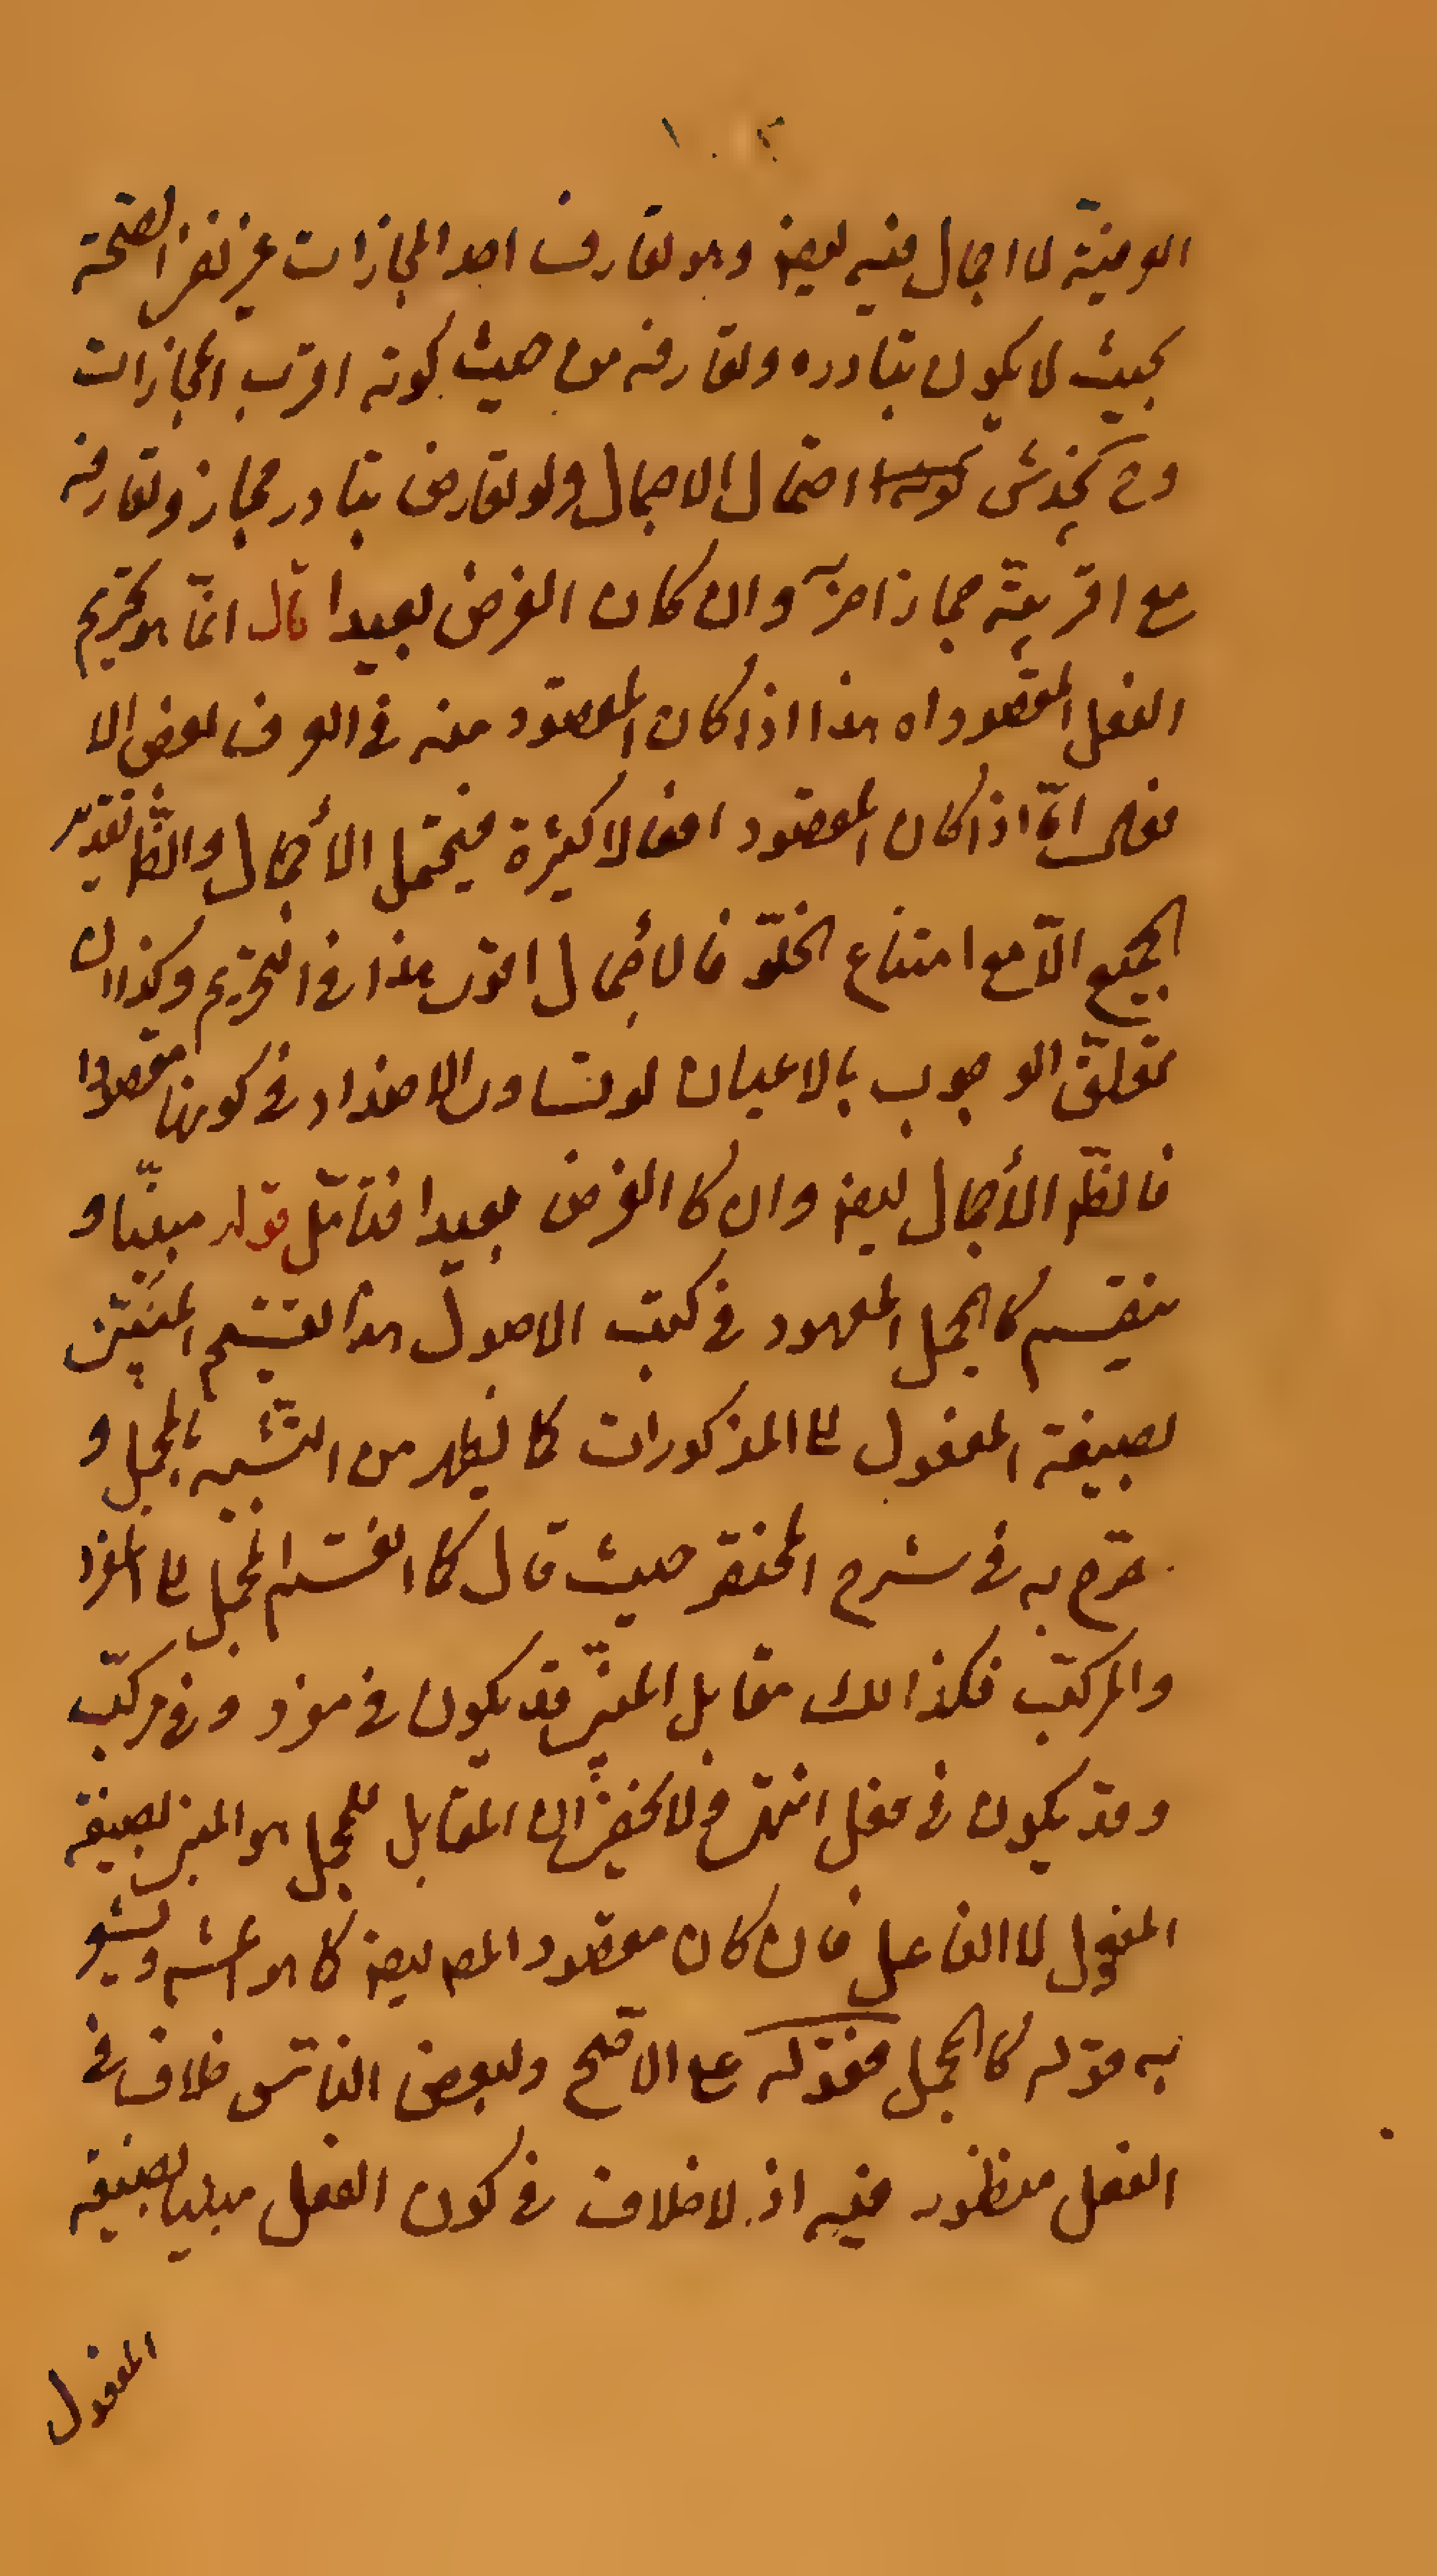 ١٠٢
العرفيّة لا اجمال فيه ايضا وهو تعارف احد المجازات غير نفى الصّحة
بحيث لا يكون تبادره وتعارفه من حيث كونه اقرب المجازات
وح يخدش احتمال الاجمال ولو تعارض تبادر مجاز وتعارفه
مع اقربيّة مجاز اخر وان كان الفرض بعيدا قال انّما هو تحريم
الفعل المقصود اه هذا اذا كان المقصود منه في العرف بعض الا
فعال امّا اذا كان المقصود افعالا كثيرة فيحتمل الأجمال والظ تقدير
الجميع الّا مع امتناع الخلوّ فالأجمال اقوى هذا في التحريم وكذا ان
تعلّق الوجوب بالاعيان لو تساوى الاضداد في كونها مقصودا
فالظّ الأجمال ايضا وان كا الفرض بعيدا فتأمّل قوله مبيّنا و
ينقسم كالمجمل المعهود في كتب الاصول هذا تقسيم المبيّن
بصيغة المفعول الى المذكورات كما يظهر من التّشبيه بالمجمل و
صرّح به في شرح المختصر حيث قال كما انقسم المجمل الى المفرد
والمركّب فكذالك مقابل المبيّن قد يكون في مفرد وفي مركّب
وقد يكون في فعل انتهى ولا يخفى ان المقابل للمجمل هو المبيّن بصيغة
المفعول لا الفاعل فان كان مقصود المص ايضا كما هو المش ويشعر
به قوله كالمجمل فقوله على الاصّح ولبعض النّاس خلاف في
الفعل منظور فيه اذ لا خلاف في كون الفعل مبينا بصيغة
المفعول